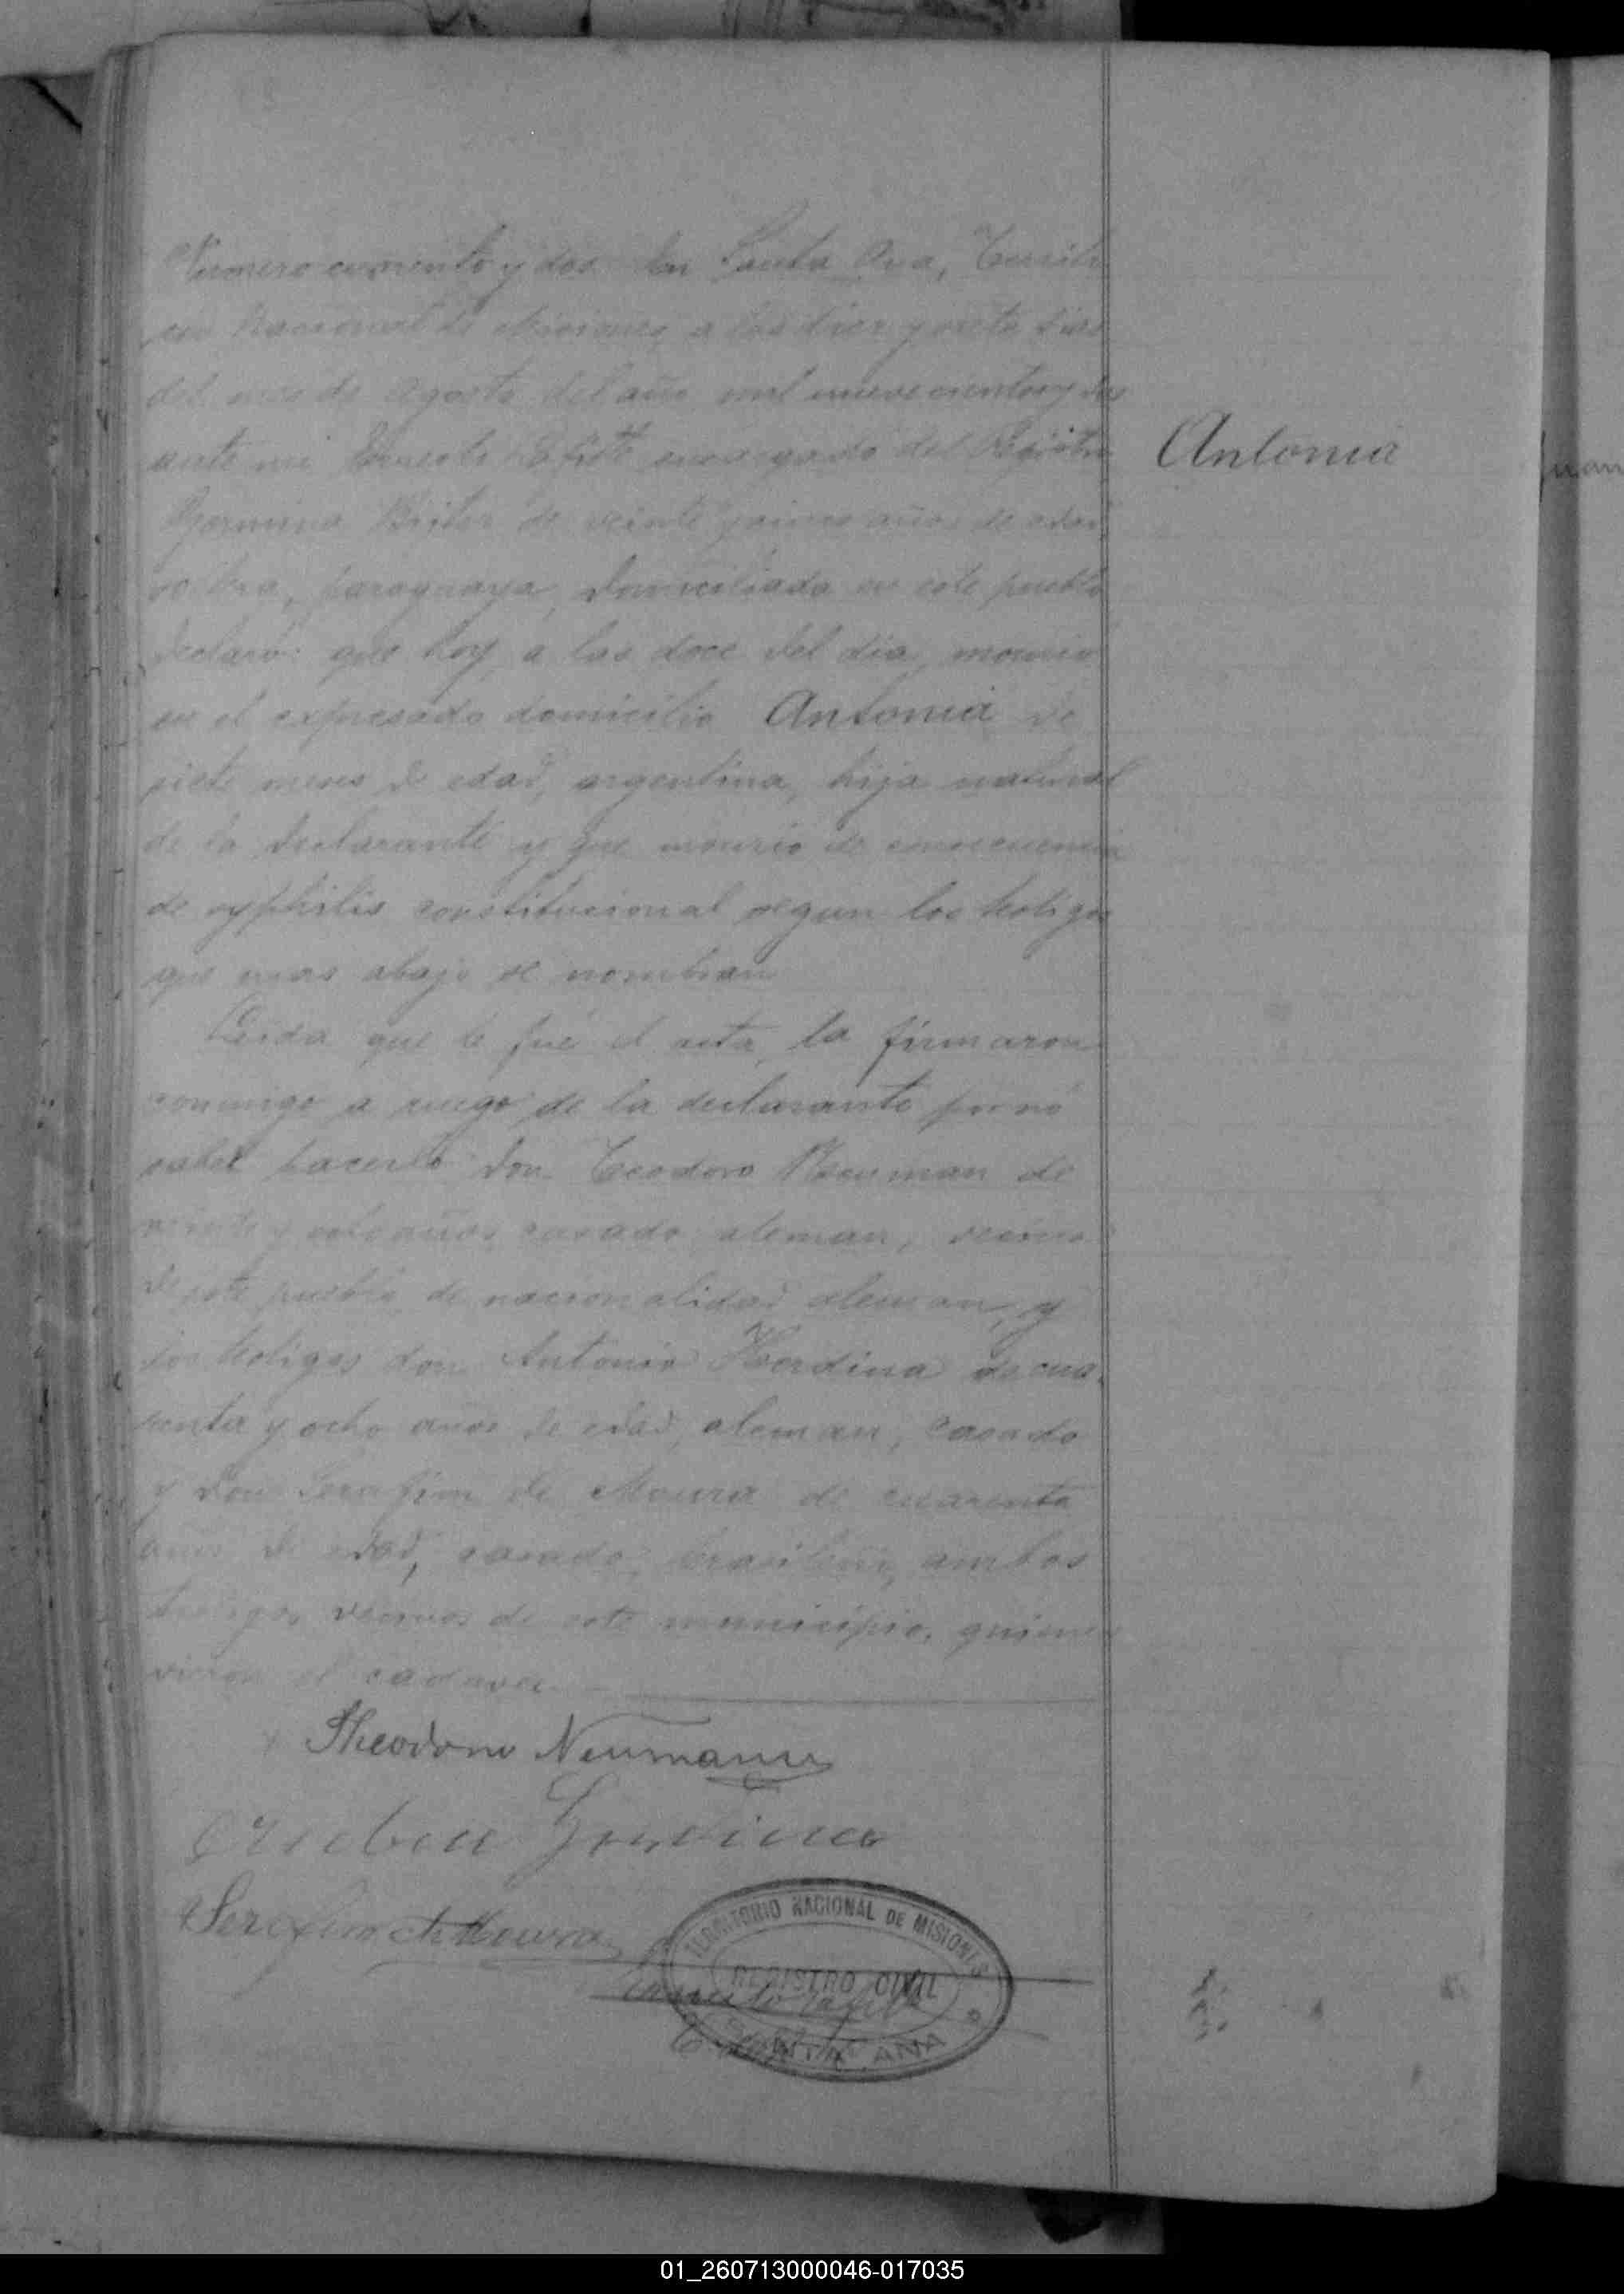 Numero cuarenta y dos. En Santa Ana, Territo
rio Nacional de Misiones, a los diez y siete dias
del mes de Agosto del año mil nuevecientos y dos
ante mi Ernesto Lafitte encargado del Registro
de veinte y cinco años de edad,
soltera, paraguaya, domiciliada en este pueblo
declaró: que hoy, a las doce del dia, murió
en el expresado domicilio Antonia de
siete meses de edad, argentina, hija natural
de la declarante y que murió de consecuencia
de syphilis constitucional segun los testigos
que mas abajo se nombran
Leida que le fué el acta, la firmaron
conmigo a ruego de la declarante por nó
saber hacerlo don Teodoro Neuman de
veinte y ocho años, casado, aleman, vecino
de este pueblo, de nacionalidad aleman, y
los testigos don Antonio Hordina de cua
renta y ocho años de edad, aleman, casado
y don Serafim de Moura de cuarenta
años de edad, casado, brasilero, ambos
testigos vecinos de este municipio, quienes
vieron el cadaver.
Antonia
Juan
Theodoro Neumann
Serafim de Moura
Ernesto Lafitte
TERRITORIO NACIONAL DE MISIONES
REGISTRO CIVIL
SANTA ANA
01_260713000046-017035